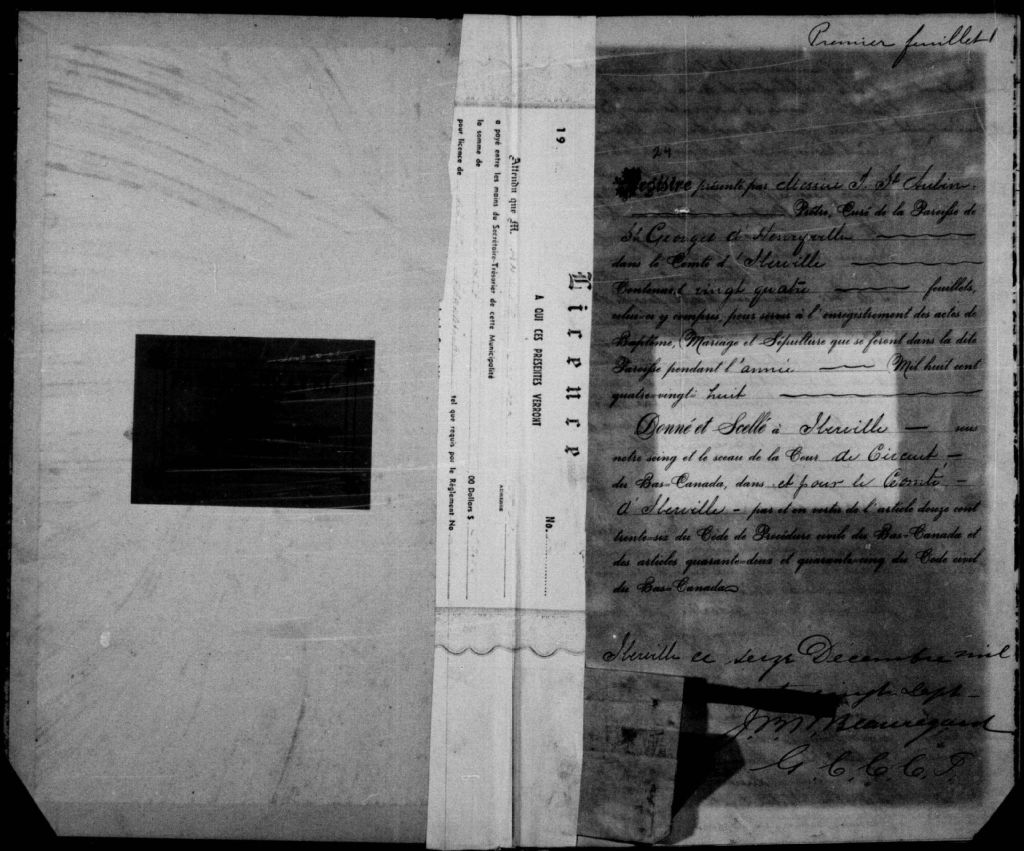 19
Licence
No.
A QUI CES PRESENTES VERRONT
Attendu que M.
ADRESSE
a payé entre les mains du Secrétaire-Trésorier de cette Municipalité
la somme de 00 Dollars $
pour licence de
tel que requis par le Règlement No
Premier feuillet 1
24
Registre présenté par Messire J. St Aubin
Prêtre, Curé de la Paroisse de
St Georges d'Henryville
dans le Comté d'Iberville
Contenant vingt quatre feuillets,
celui-ci y compris, pour servir à l'enregistrement des actes de
Baptême, Mariage et Sépulture que se feront dans la dite
Paroisse pendant l'année Mil huit cent
quatre-vingt huit
Donné et Scellé à Iberville sous
notre seing et le sceau de la Cour de Circuit
du Bas-Canada, dans et pour le Comté
d'Iberville - par et en vertu de l'article douze cent
trente-six du Code de Procédure civile du Bas-Canada et
des articles quarante-deux et quarante-cinq du Code civil
du Bas-Canada
Iberville ce seize Décembre mil
vingt sept
Beauregard
G. C. C. C. I.